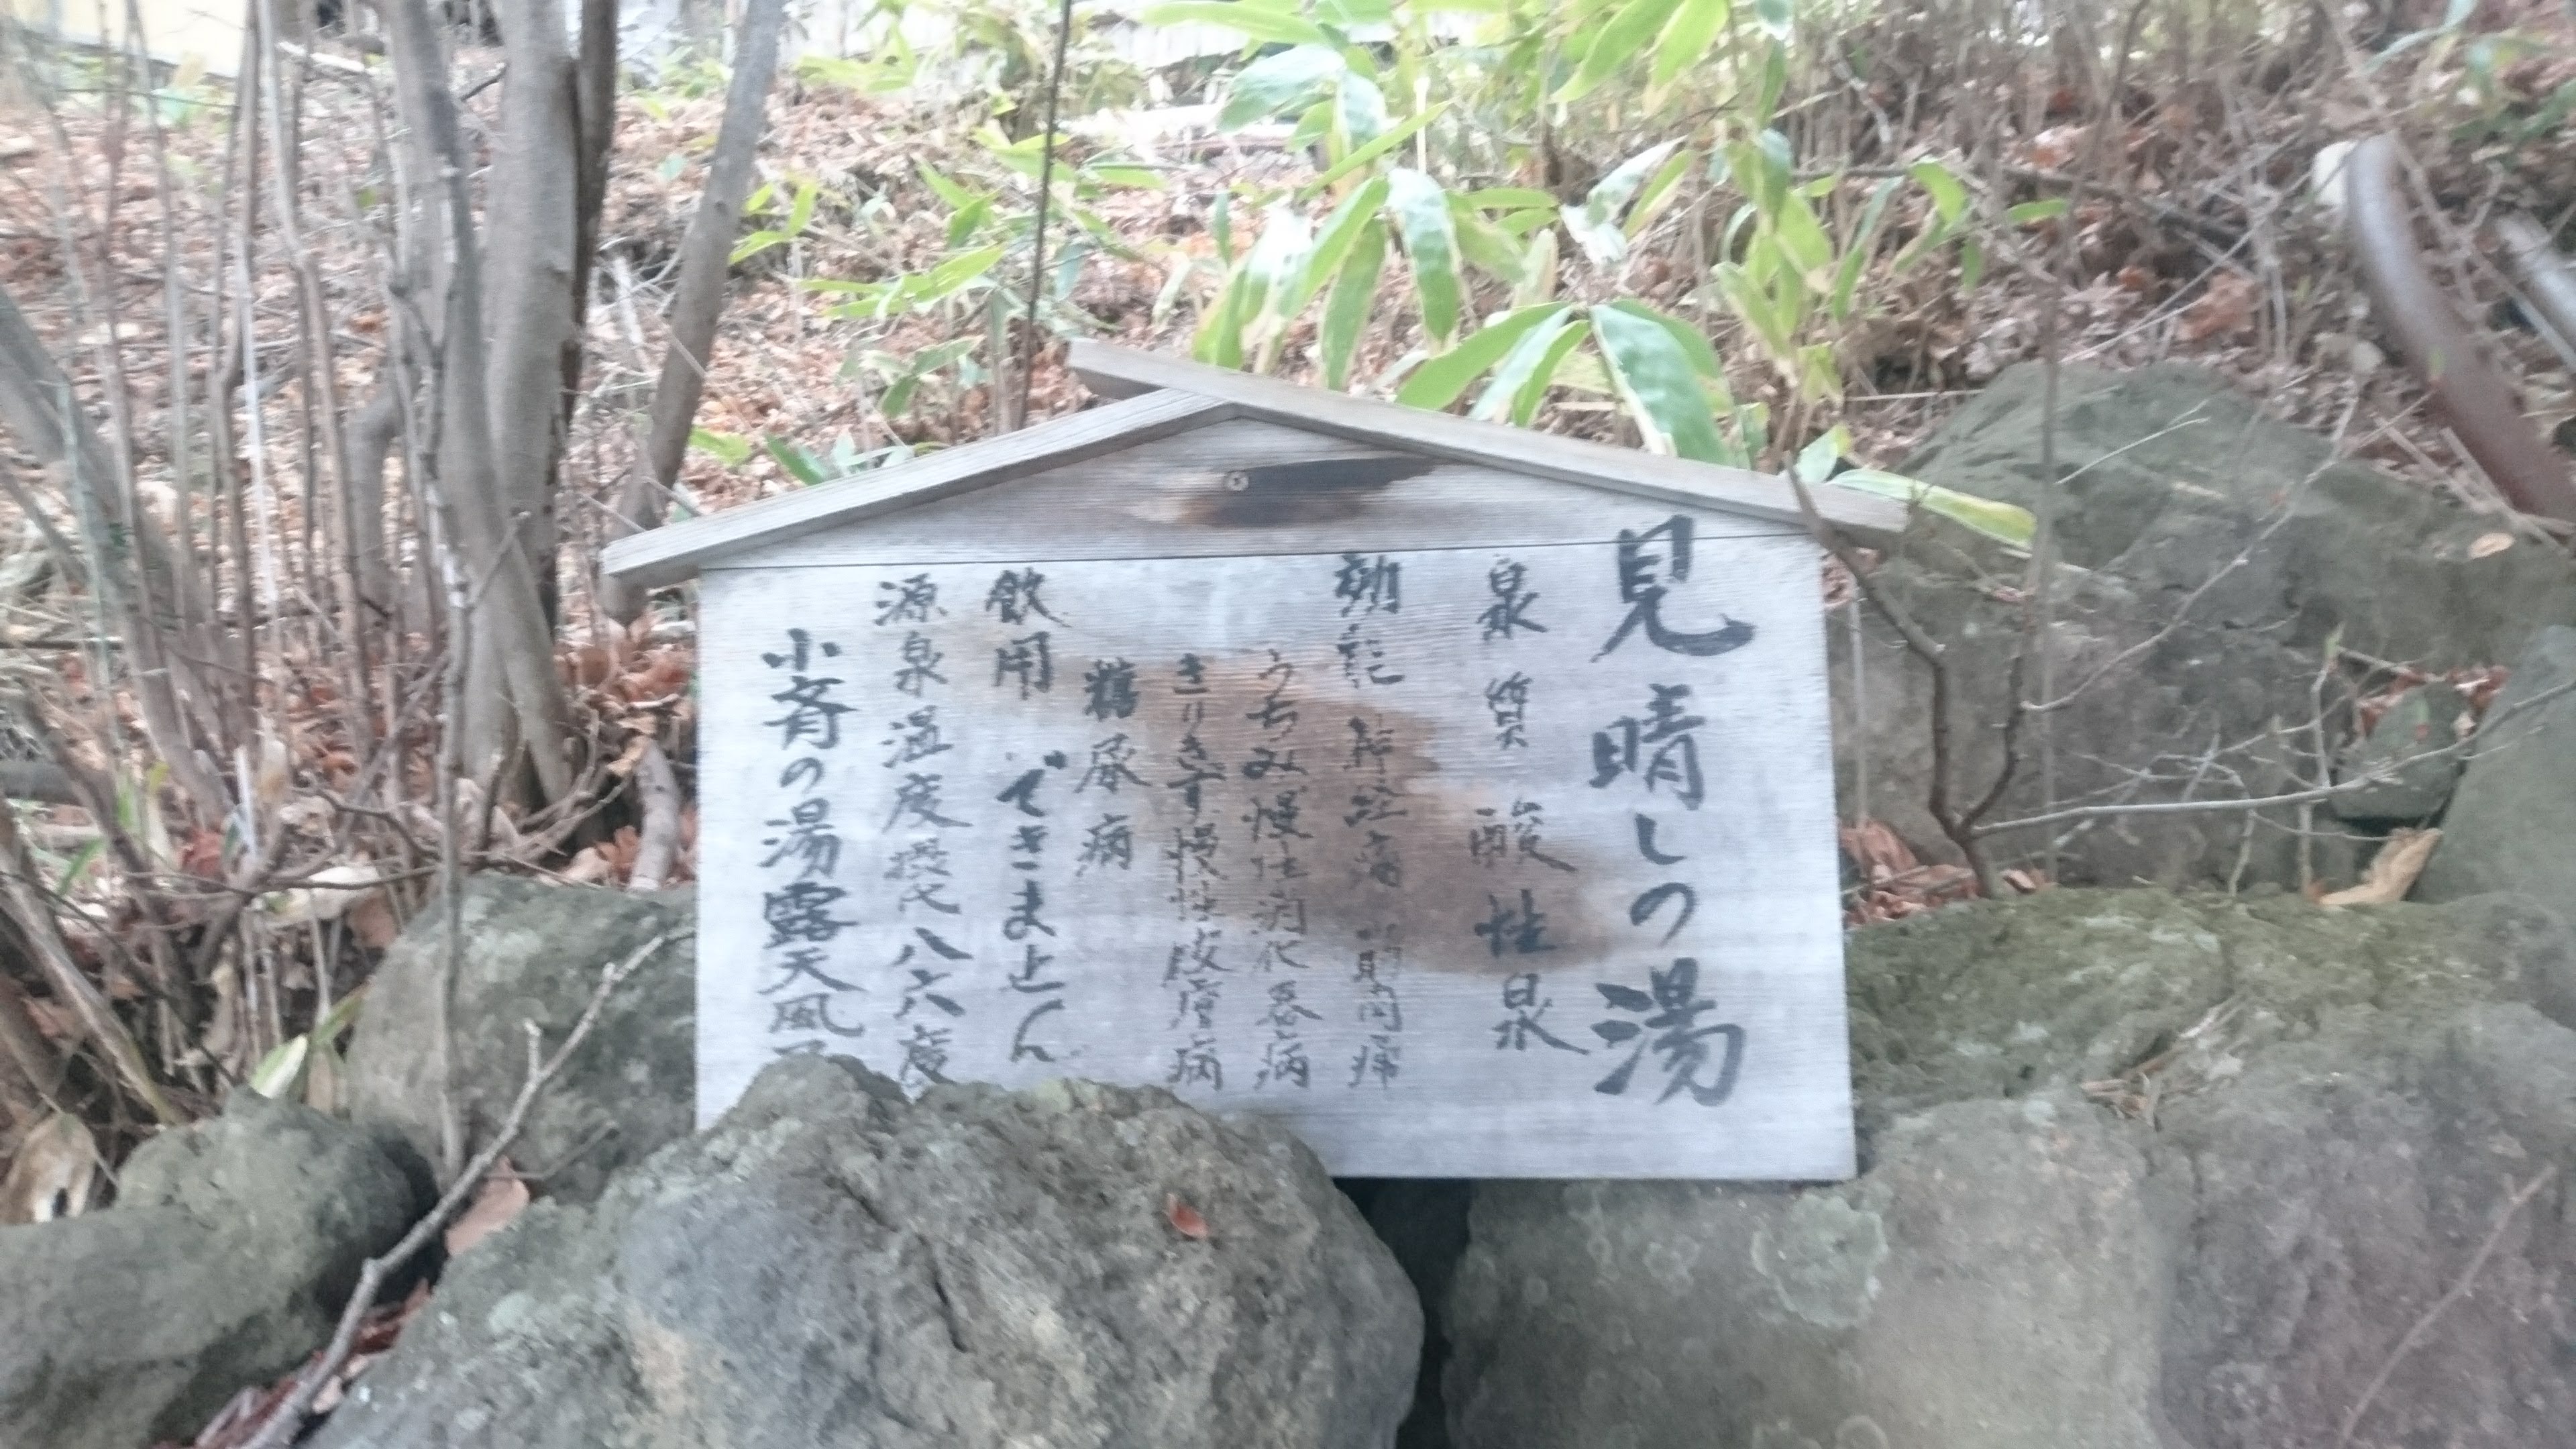 見晴しの湯
泉質 酸性泉
効能 神経痛 関節痛
うちみ 慢性消化器病
きりきず 慢性皮膚病
糖尿病
飲用 できません
源泉温度 摂氏八六度
小斉の湯露天風